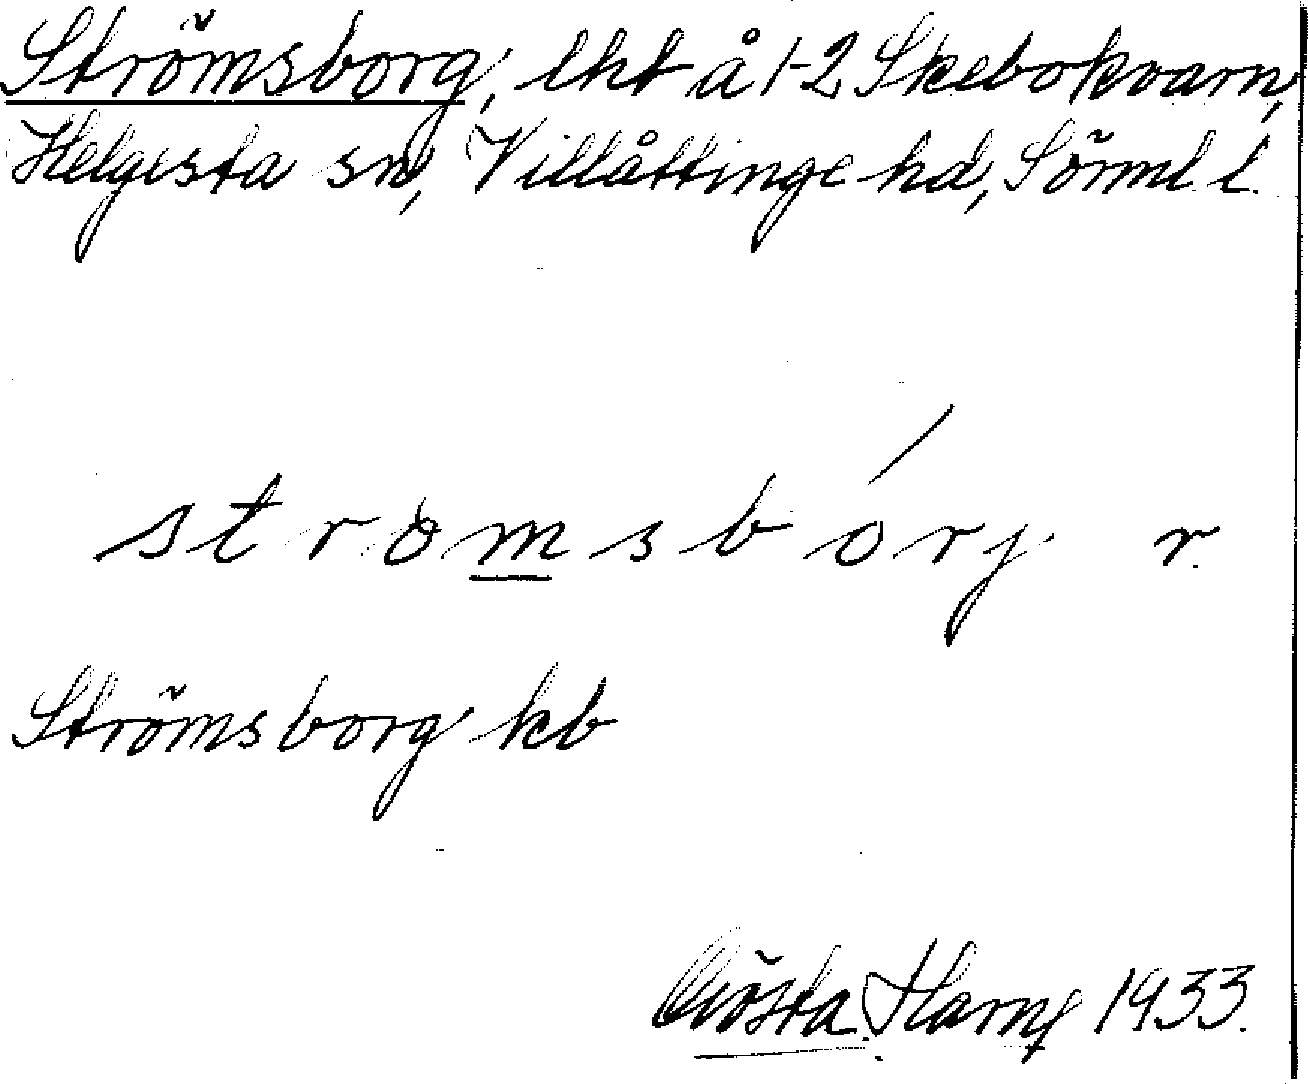 Strömsborg, lht å 1-2 Skebokvarn,
Helgesta sn, Villåttinge hd, Sörml l.
strömsbórj r.
Strömsborg kb
Gösta 1933.